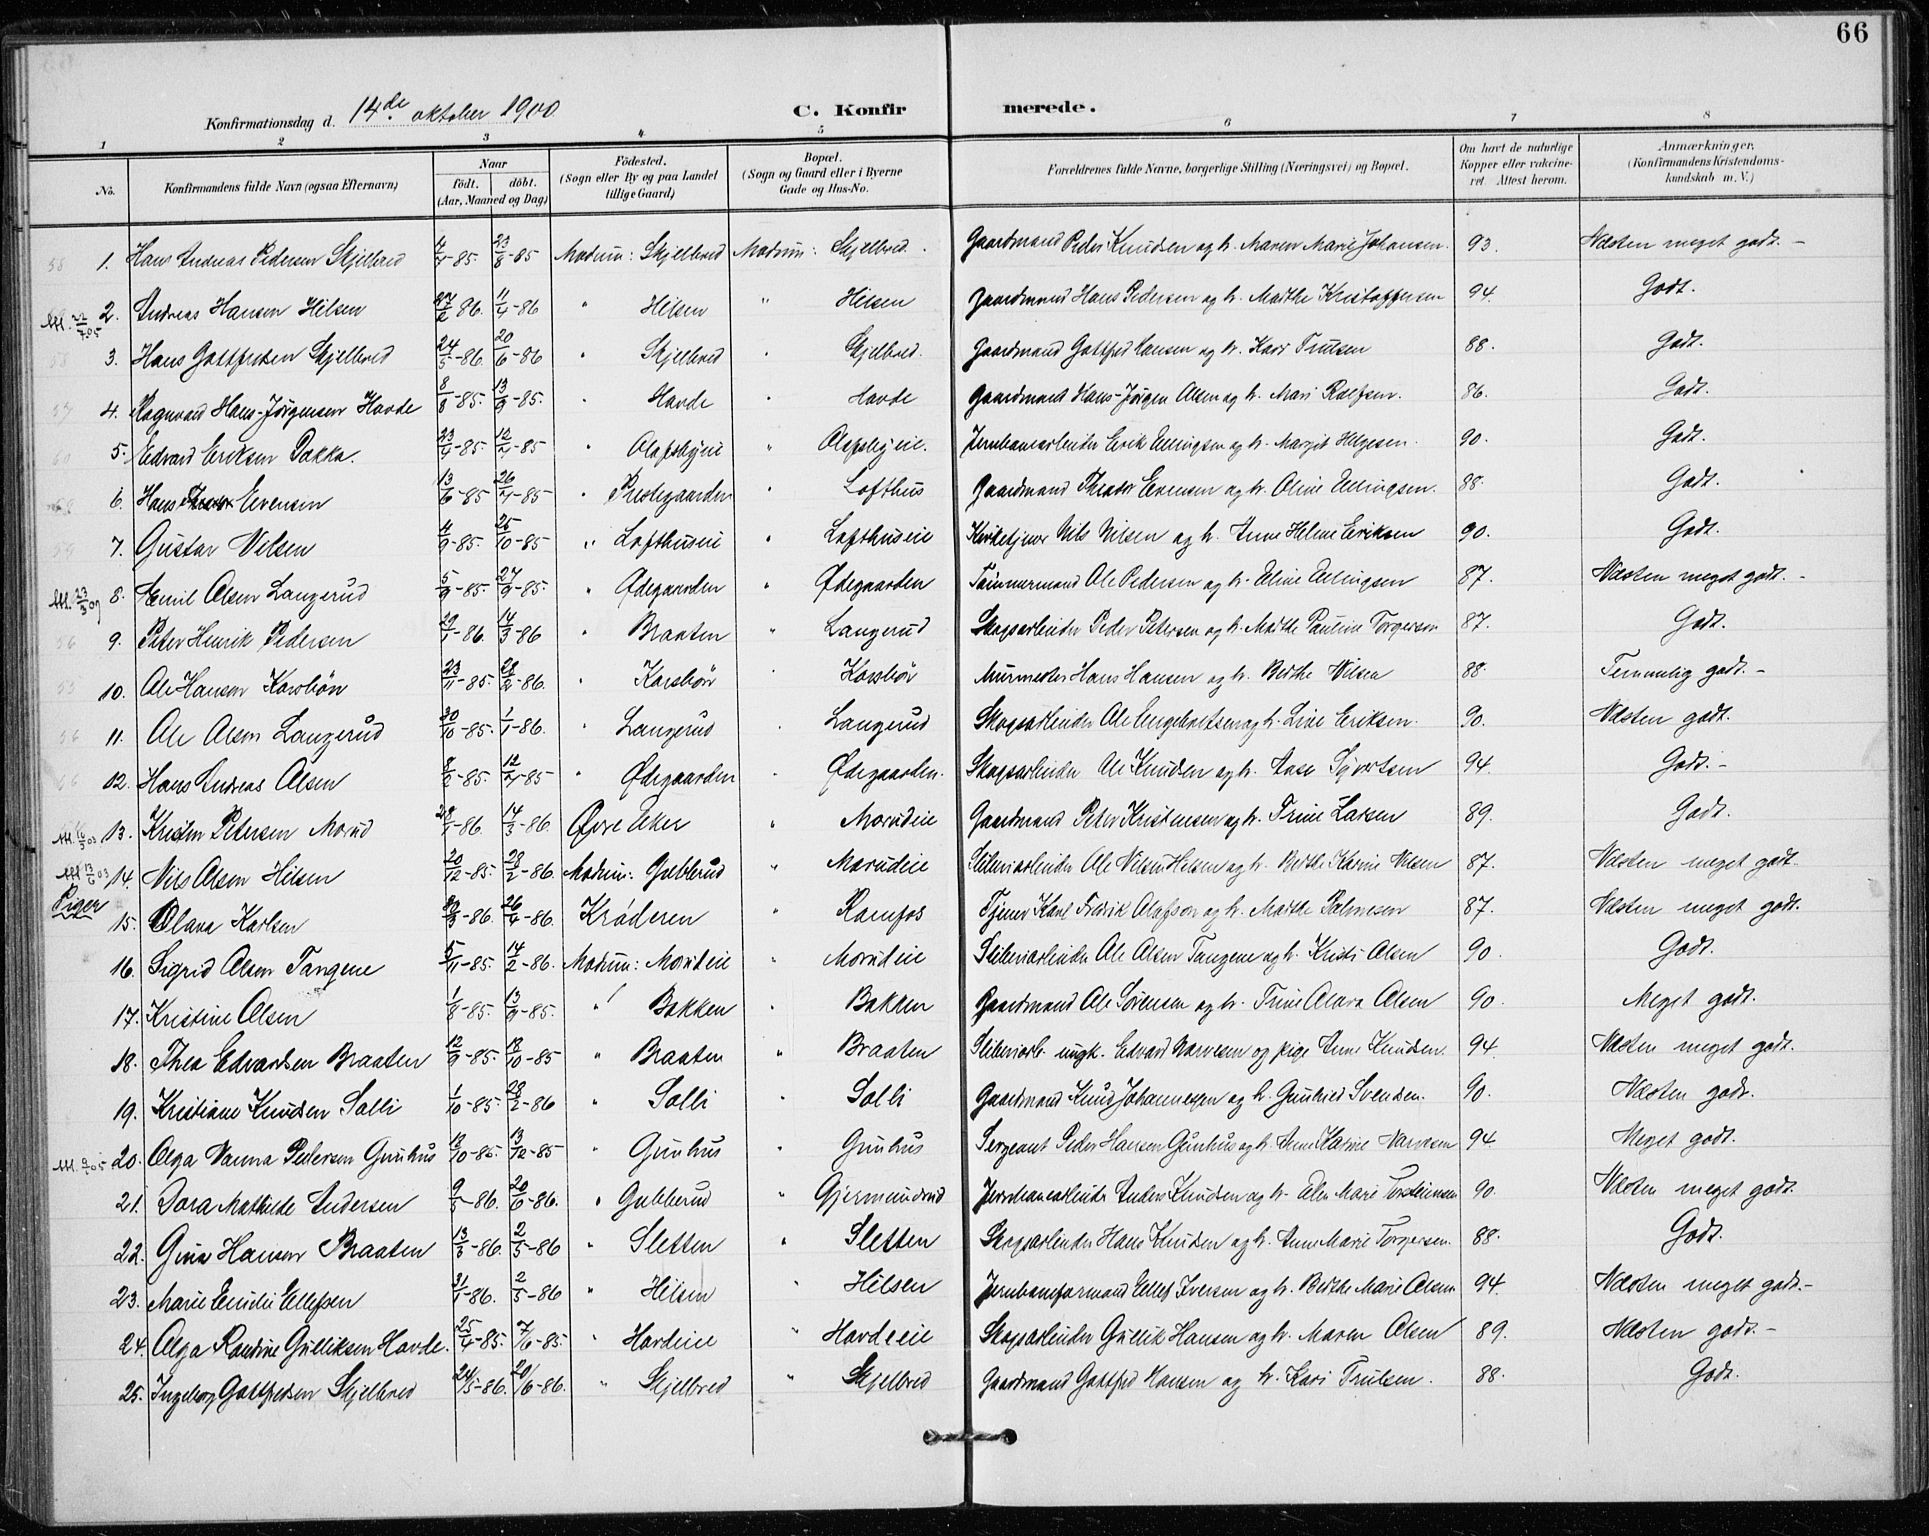 66
Konfirmationsdag d. 14de oktober 1900. C. Konfirmerede.
1 2 3 4 5 6 7 8
No. Konfirmandens fulde Navn (ogsaa Efternavn) Naar født. døbt. (Aar, Maaned og Dag) Födested. (Sogn eller By og paa Landet tillige Gaard) Bopæl. (Sogn og Gaard eller i Byerne Gade og Hus-No. Forældrenes fulde Navne, borgerlige Stilling (Næringsvei) og Bopæl. Om havt de naturlige Kopper eller vakcineret. Attest herom. Anmærkninger. (Konfirmandens Kristendomskundskab m. V.)
1. Hans Andreas Pedersen Skjelbred 4/4-85. 23/8-85 Modum: Skjelbred Modum: Skjelbred. Gaardmand Peder Knudsen og h. Maren Marie Johansen. 93. Næsten meget godt. -
2. Andreas Hansen Hilsen 27/2-86. 11/4-86 " Hilsen " Hilsen Gaardmand Hans Pedersen og h. Marthe Kristoffersen 94. Godt.
3. Hans Gottfredsen Skjelbred 24/5-86. 20/6-86 " Skjelbred " Skjelbred. Gaardmand Gottfred Hansen og h. Kari Trulsen 88. Godt.
4. Ragnvald Hans-Jørgensen Hovde 8/8-85. 13/9-85. " Hovde " Hovde Gaardmand Hans-Jørgen Olsen og h. Mari Rolfsen. 86. Godt.
5. Edvard Eriksen Bakka. 23/4-85. 12/7-85 " Olafsbyeie " Olafsbyeie. Jernbanearbeider Erik Ellingsen og h. Margit Helgesen. 90. Godt.
6. Hans Evensen 13/6-85 26/7-85 " Prestegaarden " Lofthus Gaardmand Theodor Evensen og h. Oline Ellingsen. 88. Godt.
7. Gustav Nilsen 4/9-85. 25/10-85 " Lofthuseie " Lofthuseie Kirketjener Nils Nilsen og h. Anne Helene Eriksen 90. Godt.
8. Emil Olsen Langerud 5/9-85. 27/9-85. " Ødegaarden " Ødegaarden Tømmermand Ole Pedersen og h. Eline Ellingsen 87. Næsten meget godt. -
9. Peter Henrik Pedersen 29/1-86. 14/3-86 " Braaten " Langerud Skogsarbeider Peder Petersen og h. Marthe Pauline Torgersen 87. Godt.
10. Ole Hansen Korsbøn 23/11-85. 28/2-86. " Korsbøn " Korsbøn Murmester Hans Hansen og h. Berthe Nilsen 88. Temmelig godt. -
11. Ole Olsen Langerud 20/10-85. 1/1-86. " Langerud " Langerud Skogsarbeider Ole Engebretsen og h. Line Eriksen. 90. Næsten godt.
12. Hans Andreas Olsen 8/2-85. 12/4-85 " Ødegaarden " Ødegaarden. Skogsarbeider Ole Knudsen og h. Aase Syvertsen 94. Godt. -
13. Kristen Petersen Morud 28/1-86. 14/3-86. Øvre Eker " Morudeie Gaardmand Peter Kristensen og h. Trine Larsen 89. Godt.
14. Nils Olsen Hilsen 20/12-85. 28/2-86. Modum: Gubberud " Morudeie Sliberiarbeider Ole Nilsen Hilsen og h. Berthe Karine Nilsen 87. Næsten meget godt.
Piger
15. Olava Karlsen 30/3-86. 26/4-86. Krøderen " Ramfos Tjener Karl Fredrik Olafson og h. Marthe Palmesen 87. Næsten meget godt.
16. Sigrid Olsen Tangene 5/11-85. 14/2-86. Modum: Morudeie " Morudeie Sliberiarbeider Ole Olsen Tangene og h. Kristi Olsen 90. Godt.
17. Kristine Olsen 1/8-85. 13/9-85. " Bakken " Bakken Gaardmand Ole Sørensen og h. Trine Olava Olsen 90. Meget godt.
18. Thea Edvardsen Braaten 12/9-85. 18/10-85 " Braaten " Braaten Sliberiarb. ungk. Edvard Narvesen og pige Anne Knudsen. 94. Næsten meget godt.
19. Kristiane Knudsen Solli 1/10-85. 28/2-86 " Solli " Solli Gaardmand Knud Johannessen og h. Gunhild Svendsen. 90. Næsten godt.
20. Olga Vanna Pedersen Grinhus 12/10-85. 13/12-85 " Grinhus " Grinhus Sergeant Peder Hansen Grinhus og h. Anne Karine Narvesen 94 Meget godt.
21. Dora Mathilde Andersen 9/5-86. 20/6-86. " Gubberud " Gjermundrud Jernbanearbeider Anders Knudsen og h. Elen Marie Torsteinsen 90. Næsten meget godt.
22. Gina Hansen Braaten 13/3-86. 2/5-86 " Sletten " Sletten Skogsarbeider Hans Knudsen og h. Anne Marie Torgersen. 88. Godt.
23. Marie Emilie Ellefsen 31/1-86. 2/5-86 " Hilsen " Hilsen Jernbaneformand Ellef Iversen og h. Berthe Marie Olsen 94. Næsten meget godt.-
24. Olga Randine Gulliksen Hovde. 25/4-85. 7/6-85. " Hovdeeie " Hovdeeie Skogsarbeider Gullik Hansen og h. Maren Olsen 89. Næsten godt. -
25. Ingeborg Gottfredsen Skjelbred 24/5-86. 20/6-86. " Skjelbred " Skjelbred Gaardmand Gottfred Hansen og h. Kari Trulsen. 88. Godt.